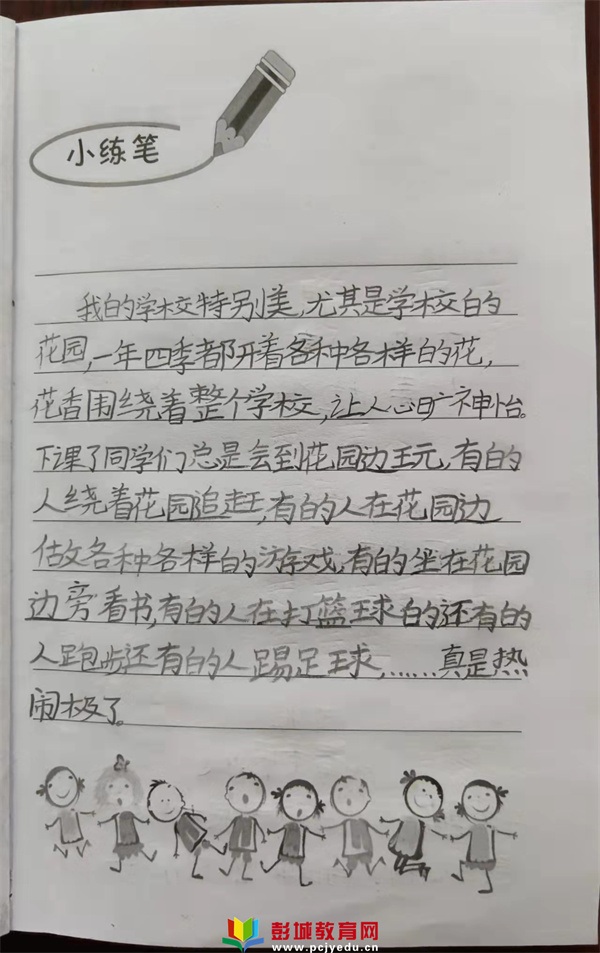 小练笔
我的学校特别美，尤其是学校的
花园，一年四季都开着各种各样的花，
花香围绕着整个学校，让人心旷神怡。
下课了同学们总是会到花园边玩，有的
人绕着花园追赶，有的人在花园边
做各种各样的游戏，有的坐在花园
边旁看书，有的人在打篮球的还有的
人跑步还有的人踢足球，……真是热
闹极了。
彭城教育网
www.pcjyedu.cn